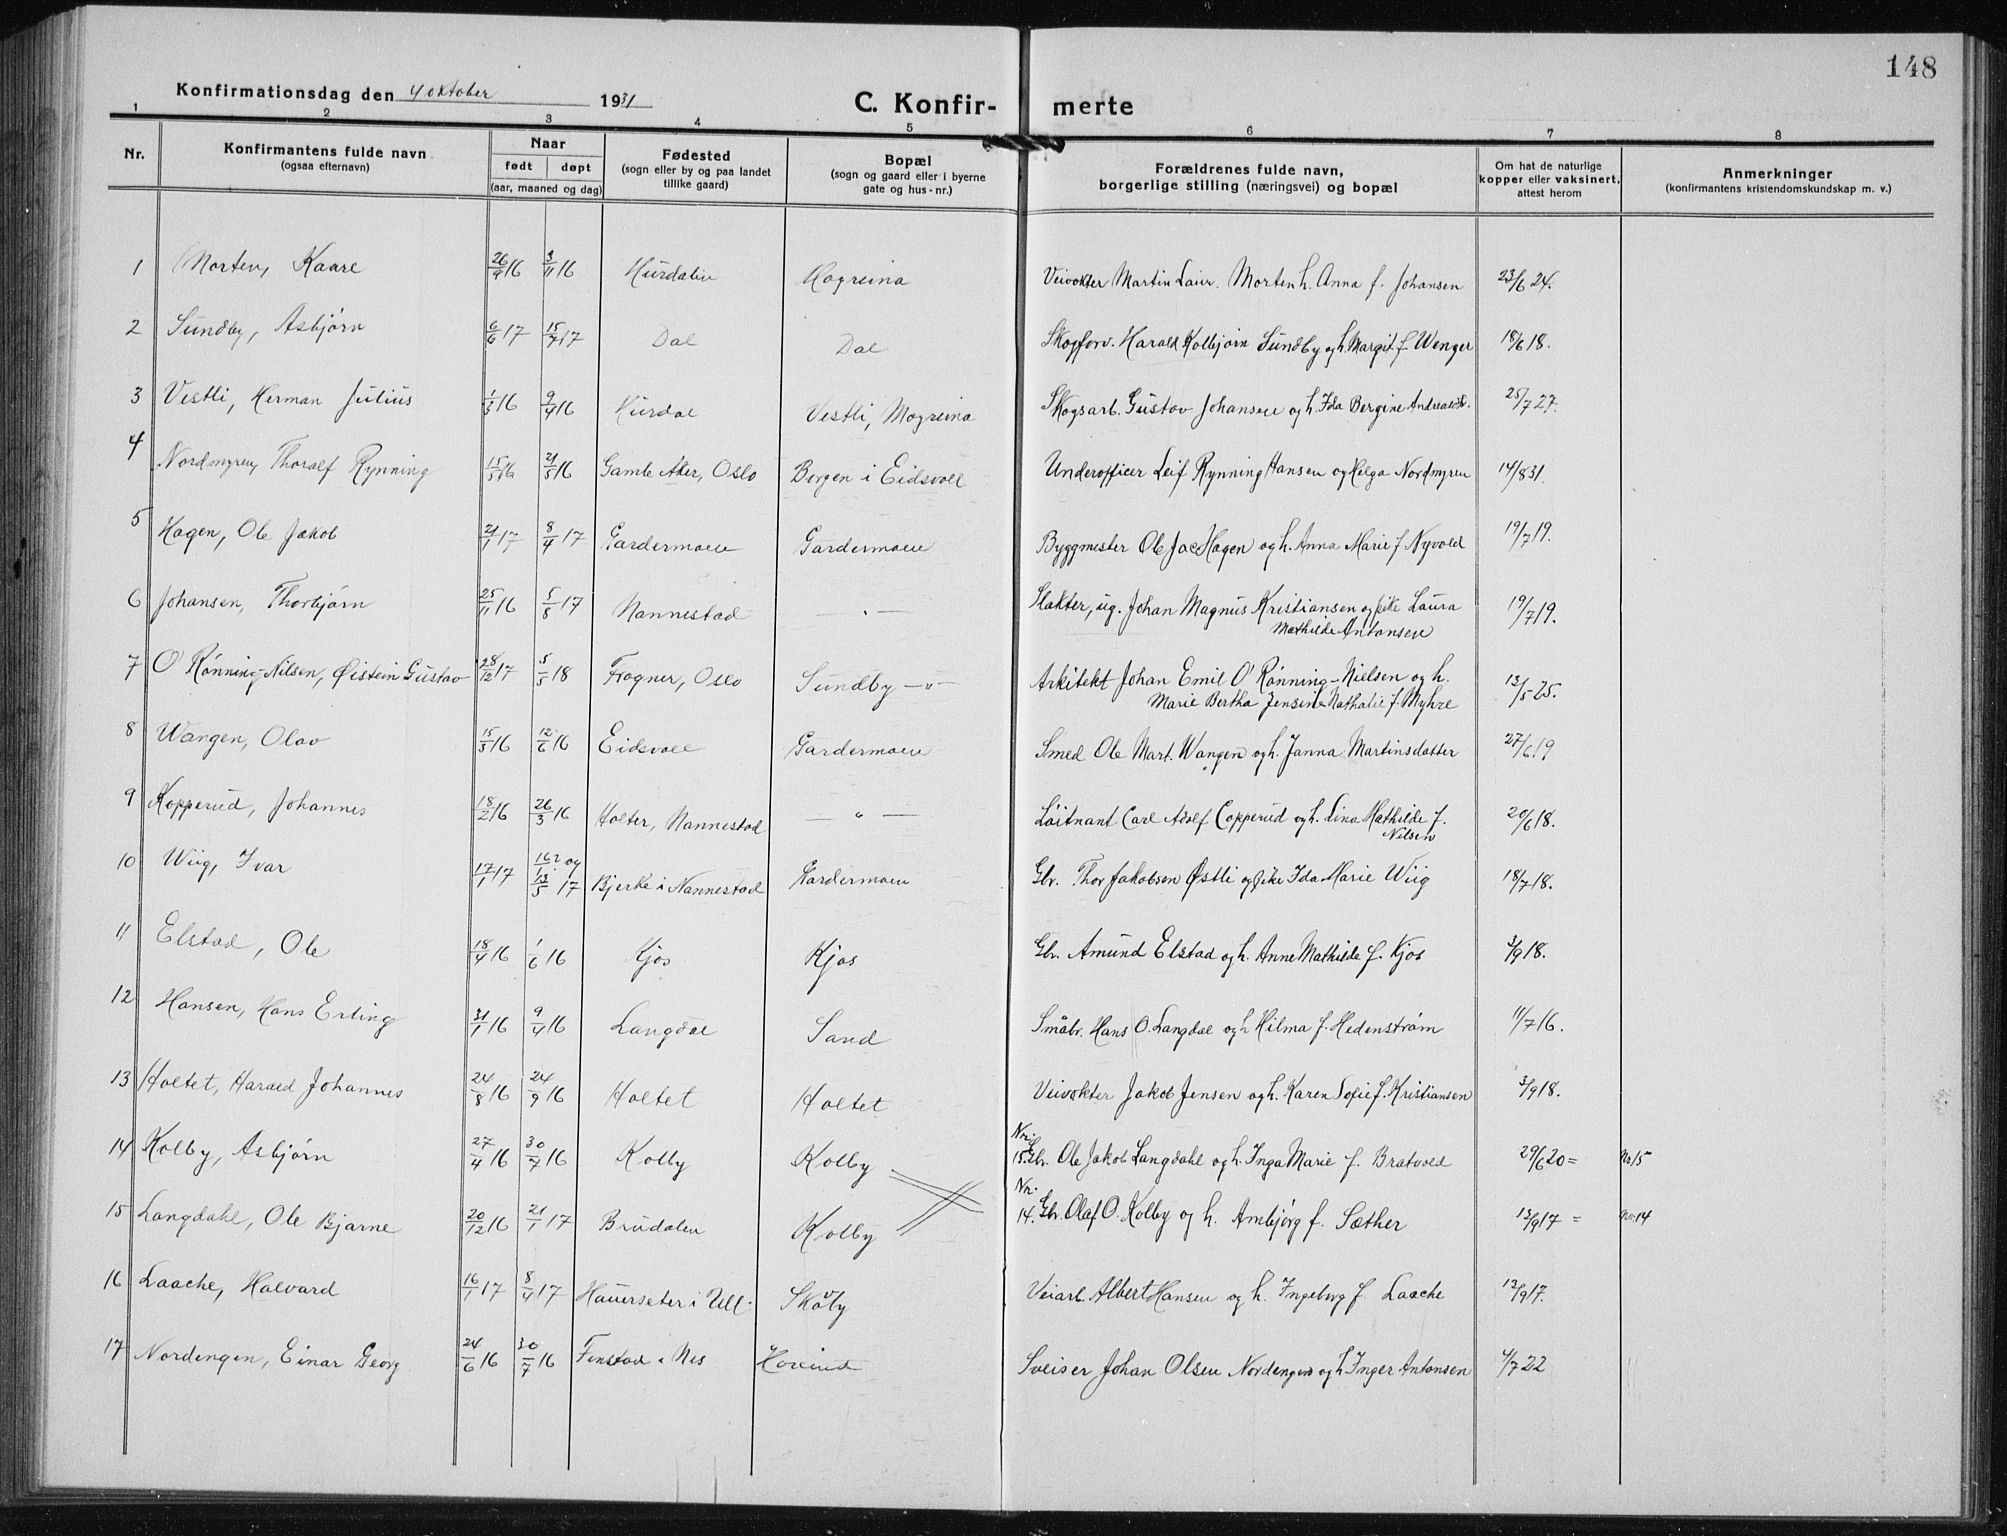 148
Konfirmationsdag den 4 oktober 1931
C. Konfir- merte
1 2 3 4 5 6 7 8
Nr.
Konfirmantens fulde navn
(ogsaa efternavn)
Naar
født døpt
(aar, maaned og dag)
Fødested
(sogn eller by og paa landet
tillike gaard)
Bopæl
(sogn og gaard eller i byerne
gate og hus-nr.)
Forældrenes fulde navn,
borgerlige stilling (næringsvei) og bopæl
Om hat de naturlige
kopper eller vaksinert,
attest herom
Anmerkninger
(konfirmantens kristendomskundskap m. v.)
1 Morten, Kaare 26/9 16 3/11 16 Hurdalen Mogreina Veivokter Martin Laur. Morten h. Anna f. Johansen 23/6 24.
2 Sundby, Asbjørn 6/6 17 15/7 17 Dal Dal Skogforv. Harald Kolbjørn Sundby og h. Margit f. Wenger 18/6 18.
3 Vestli, Herman Julius 1/3 16 9/4 16 Hurdal Vestli, Mogreina Skogsarb. Gustav Johansen og h. Ida Bergine Andreasdt. 25/7 27.
4 Nordmyren, Thoralf Rynning 15/3 16 21/5 16 Gamle Aker, Oslo Borgen i Eidsvoll Underofficer Leif Rynning Hansen og Helga Nordmyren 14/8 31.
5 Hagen, Ole Jakob 21/1 17 8/4 17 Gardermoen Gardermoen Byggmester Ole Jac Hagen og h. Anna Marie f. Nyvold 19/7 19.
6 Johansen, Thorbjørn 25/11 16 5/8 17 Nannestad — " — Slakter, ug. Johan Magnus Kristiansen og pike Laura
Mathilde Antonsen 19/7 19.
7 O' Rønning-Nilsen, Øistein Gustav 28/12 17 5/5 18 Frogner, Oslo Sundby — " — Arkitekt Johan Emil O' Rønning-Nielsen og h.
Marie Bertha Jensine Nathalie f. Myhre 13/5 25.
8 Wangen, Olav 15/3 16 12/6 16 Eidsvoll Gardermoen Smed Ole Mart. Wangen og h. Janna Martinsdatter 27/6 19
9 Kopperud, Johannes 18/2 16 26/3 16 Holter, Nannestad — " — Løitnant Carl Adolf Copperud og h. Lina Mathilde f.
Nilsen 20/6 18.
10 Wiig, Ivar 17/1 17 og
13/5 17 Bjerke i Nannestad Gardermoen Gbr. Thor Jakobsen Østli og pike Ida Marie Wiig 18/7 18.
11 Elstad, Ole 18/4 16 1/6 16 Kjos Kjos Gbr. Amund Elstad og h. Anne Mathilde f. Kjos 3/9 18.
12 Hansen, Hans Erling 31/1 16 9/4 16 Langdal Sand Småbr. Hans O. Langdal og h Hilma f. Hedenstrøm 11/7 16.
13 Holtet, Harald Johannes 24/8 16 24/9 16 Holtet Holtet Veivokter Jakob Jensen og h. Karen Sofie f. Kristiansen 3/9 18.
14 Kolby, Asbjørn 27/4 16 30/7 16 Kolby Kolby Nr. 15. Gbr. Ole Jakob Langdahl og h. Inga Marie f. Bratvold 29/6 20 = No 15
15 Langdahl, Ole Bjarne 20/12 16 21/1 17 Brudalen Kolby Nr. 14. Gbr. Olaf O. Kolby og h. Ambjørg f. Sæther 13/9 17 = No 14
16 Laache, Halvard 16/1 17 8/4 17 Hauerseter i Ull. Skåby Veiarb. Albert Hansen og h. Ingeborg f. Laache 13/9 17.
17 Nordengen, Einar Georg 24/6 16 30/7 16 Fenstad i Nes Hovind Sveiser Johan Olsen Nordengen og h Inger Antonsen 4/7 22